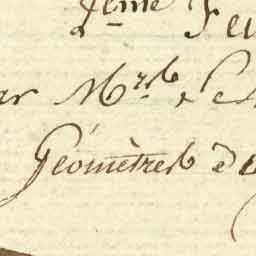 2eme Feu
ar Mrs Le
Géomètres de